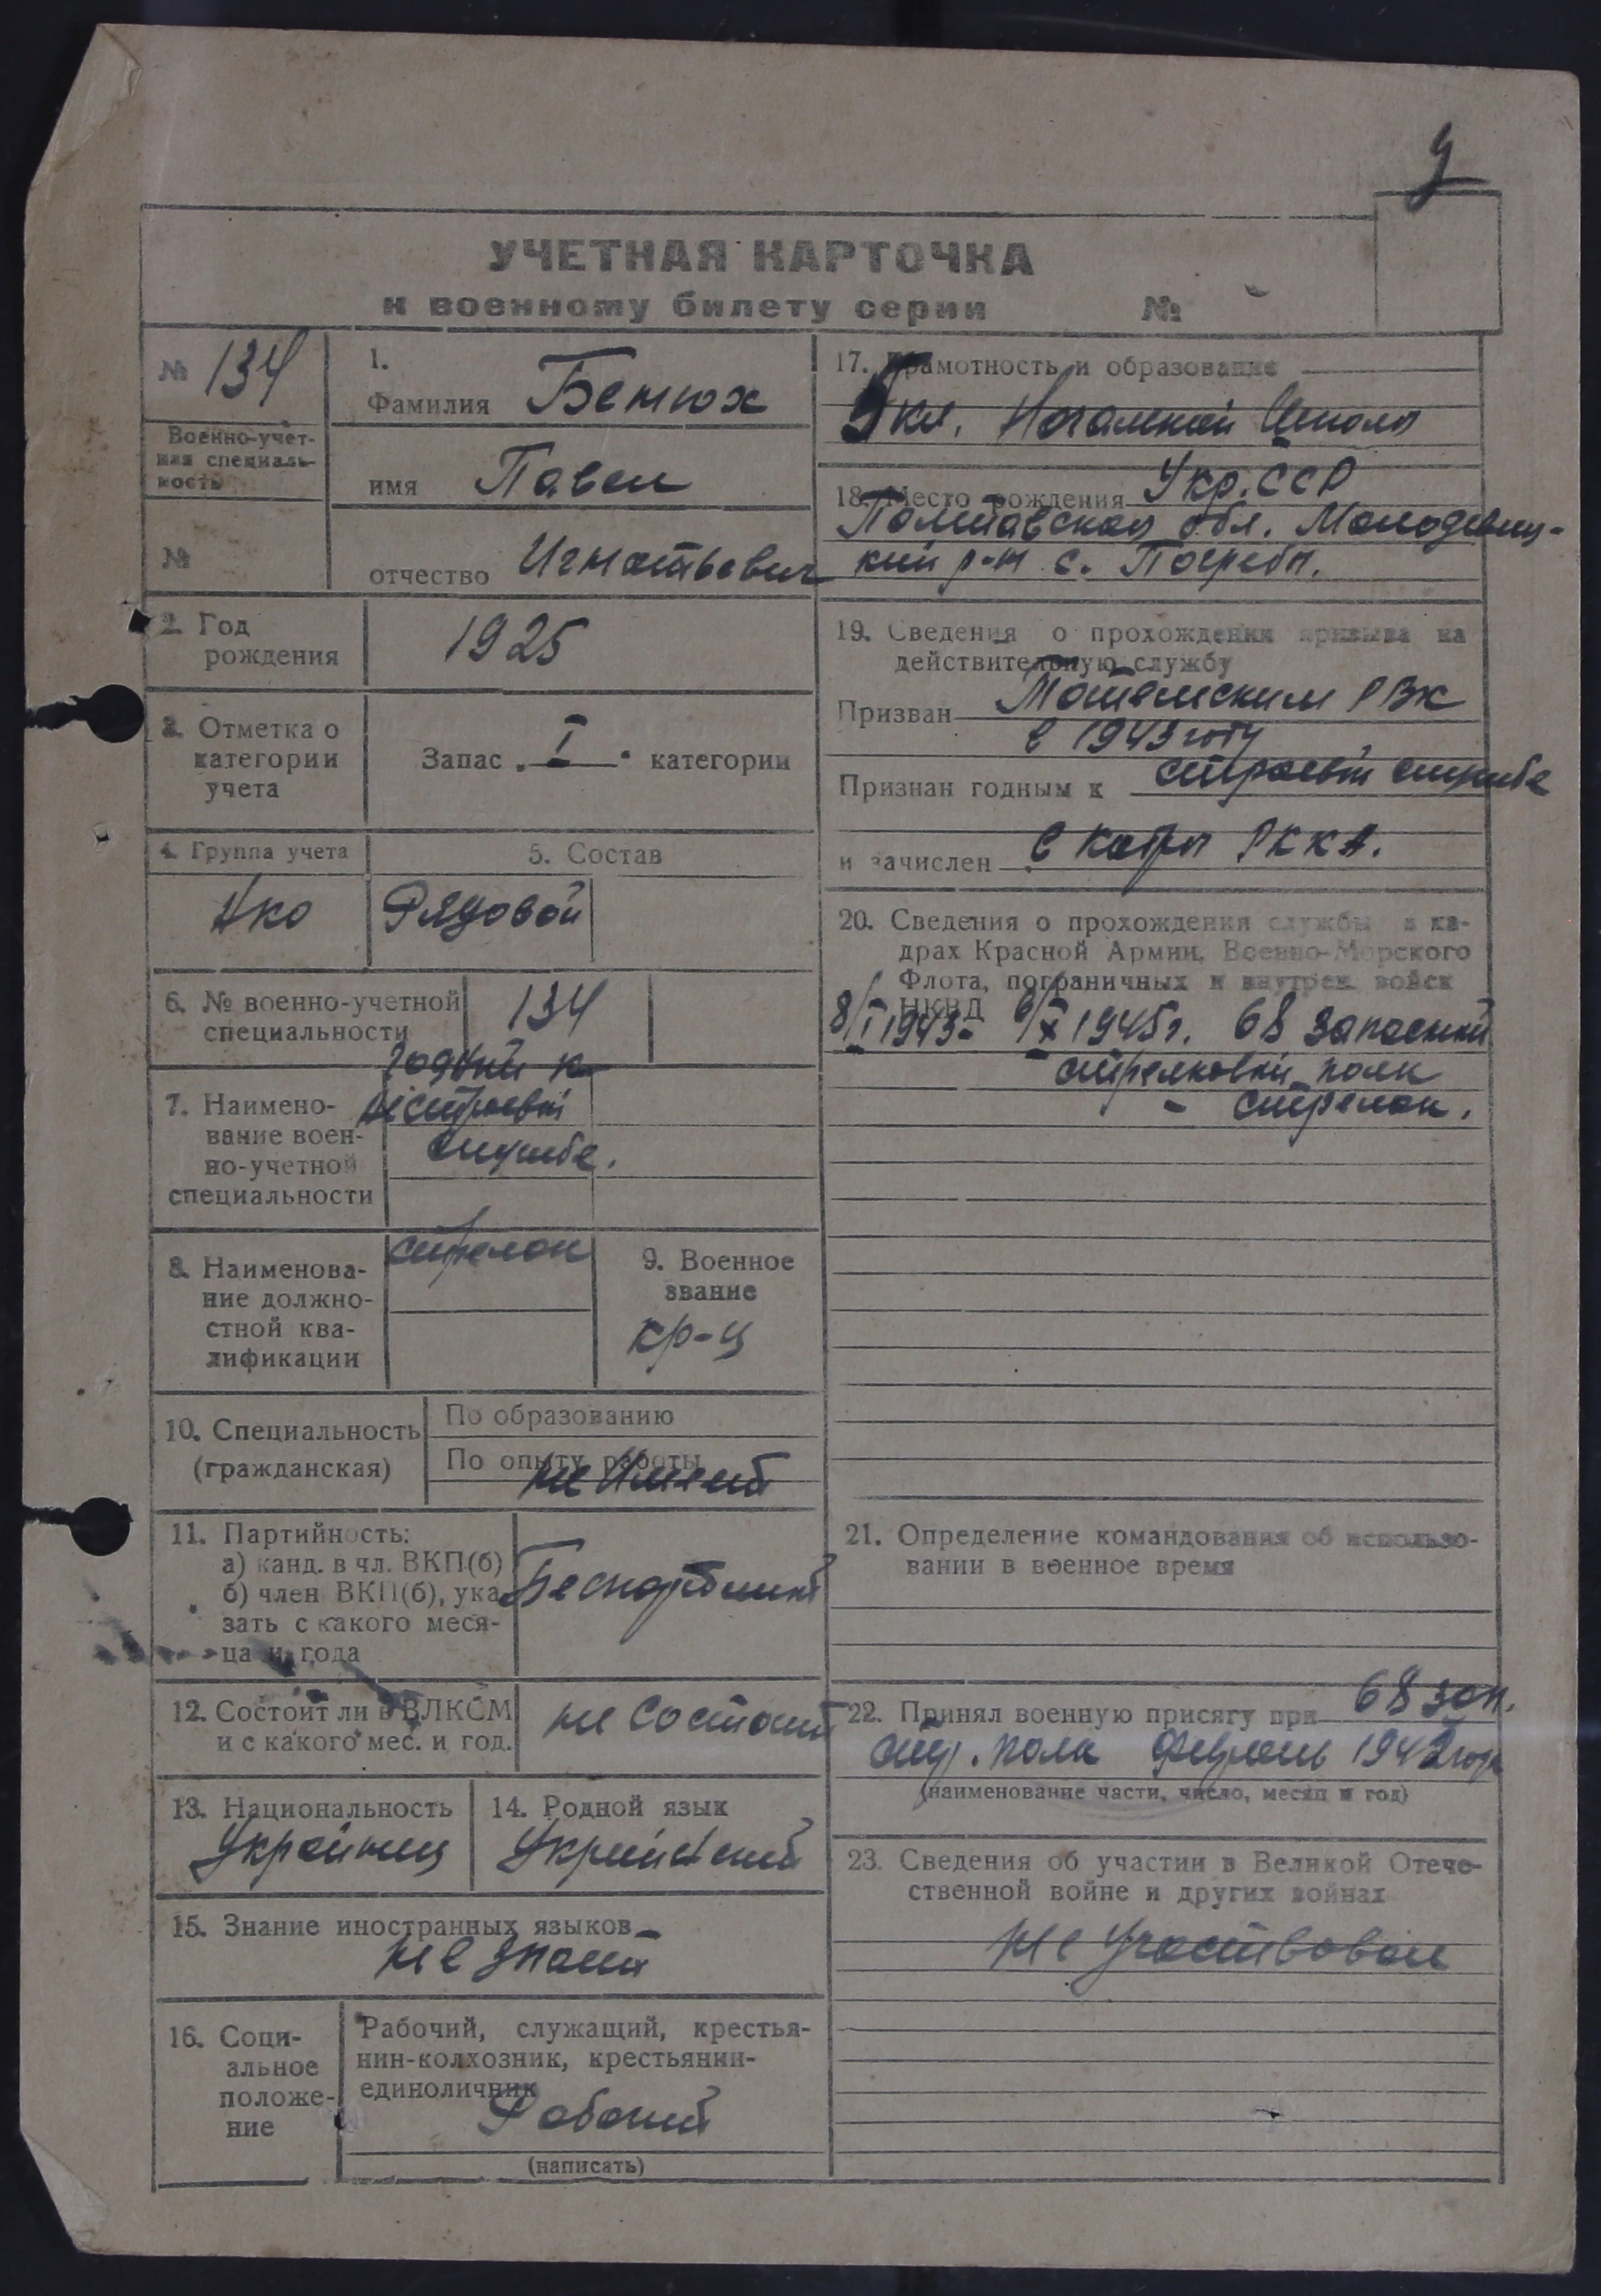 у
УЧЕТНАЯ КАРТОЧКА
к военному билету серии №
№ 134
Военно-учет-
ная специаль-
ность
№
1.
Фамилия Бенюх
имя Павел
отчество Игнатьевич
2. Год
рождения
1925
3. Отметка о
категории
учета
Запас „I“ категории
4. Группа учета
5. Состав
Рядовой
6. № военно-учетной
специальности
134
7. Наимено-
вание воен-
но-учетной
специальности
годный к
нестроевой
службе.
8. Наименова-
ние должно-
стной ква-
лификации
стрелок
9. Военное
звание
кр-ц
10. Специальность
(гражданская)
По образованию
По опыту работы
не имеет
11. Партийность:
а) канд. в чл. ВКП(б)
б) член ВКП(б), ука-
зать с какого меся-
ца и года
Беспартийный
12. Состоит ли в ВЛКСМ
и с какого мес. и год.
не состоит
13. Национальность
Украинец
14. Родной язык
Украинский
15. Знание иностранных языков
не знает
16. Соци-
альное
положе-
ние
Рабочий, служащий, крестья-
нин-колхозник, крестьянин-
единоличник
Рабочий
(написать)
17. Грамотность и образование
кл. Школы
18. Место рождения Укр. ССР
Полтавская обл.
кий р-н с. Погребы.
19. Сведения о прохождении призыва на
действительную службу
Призван РВК
в 1943 году
Признан годным к строевой службе
и зачислен в кадры РККА.
20. Сведения о прохождении службы в ка-
драх Красной Армии, Военно-Морского
Флота, пограничных и внутрен. войск
НКВД
8/I 1943- 6/X 1945г. 68 запасный
стрелковый полк
- стрелок.
21. Определение командования об использо-
вании в военное время
22. Принял военную присягу при 68 зап.
стр. полк февраль 1943 года
(наименование части, число, месяц и год)
23. Сведения об участии в Великой Отече-
ственной войне и других войнах
не участвовал